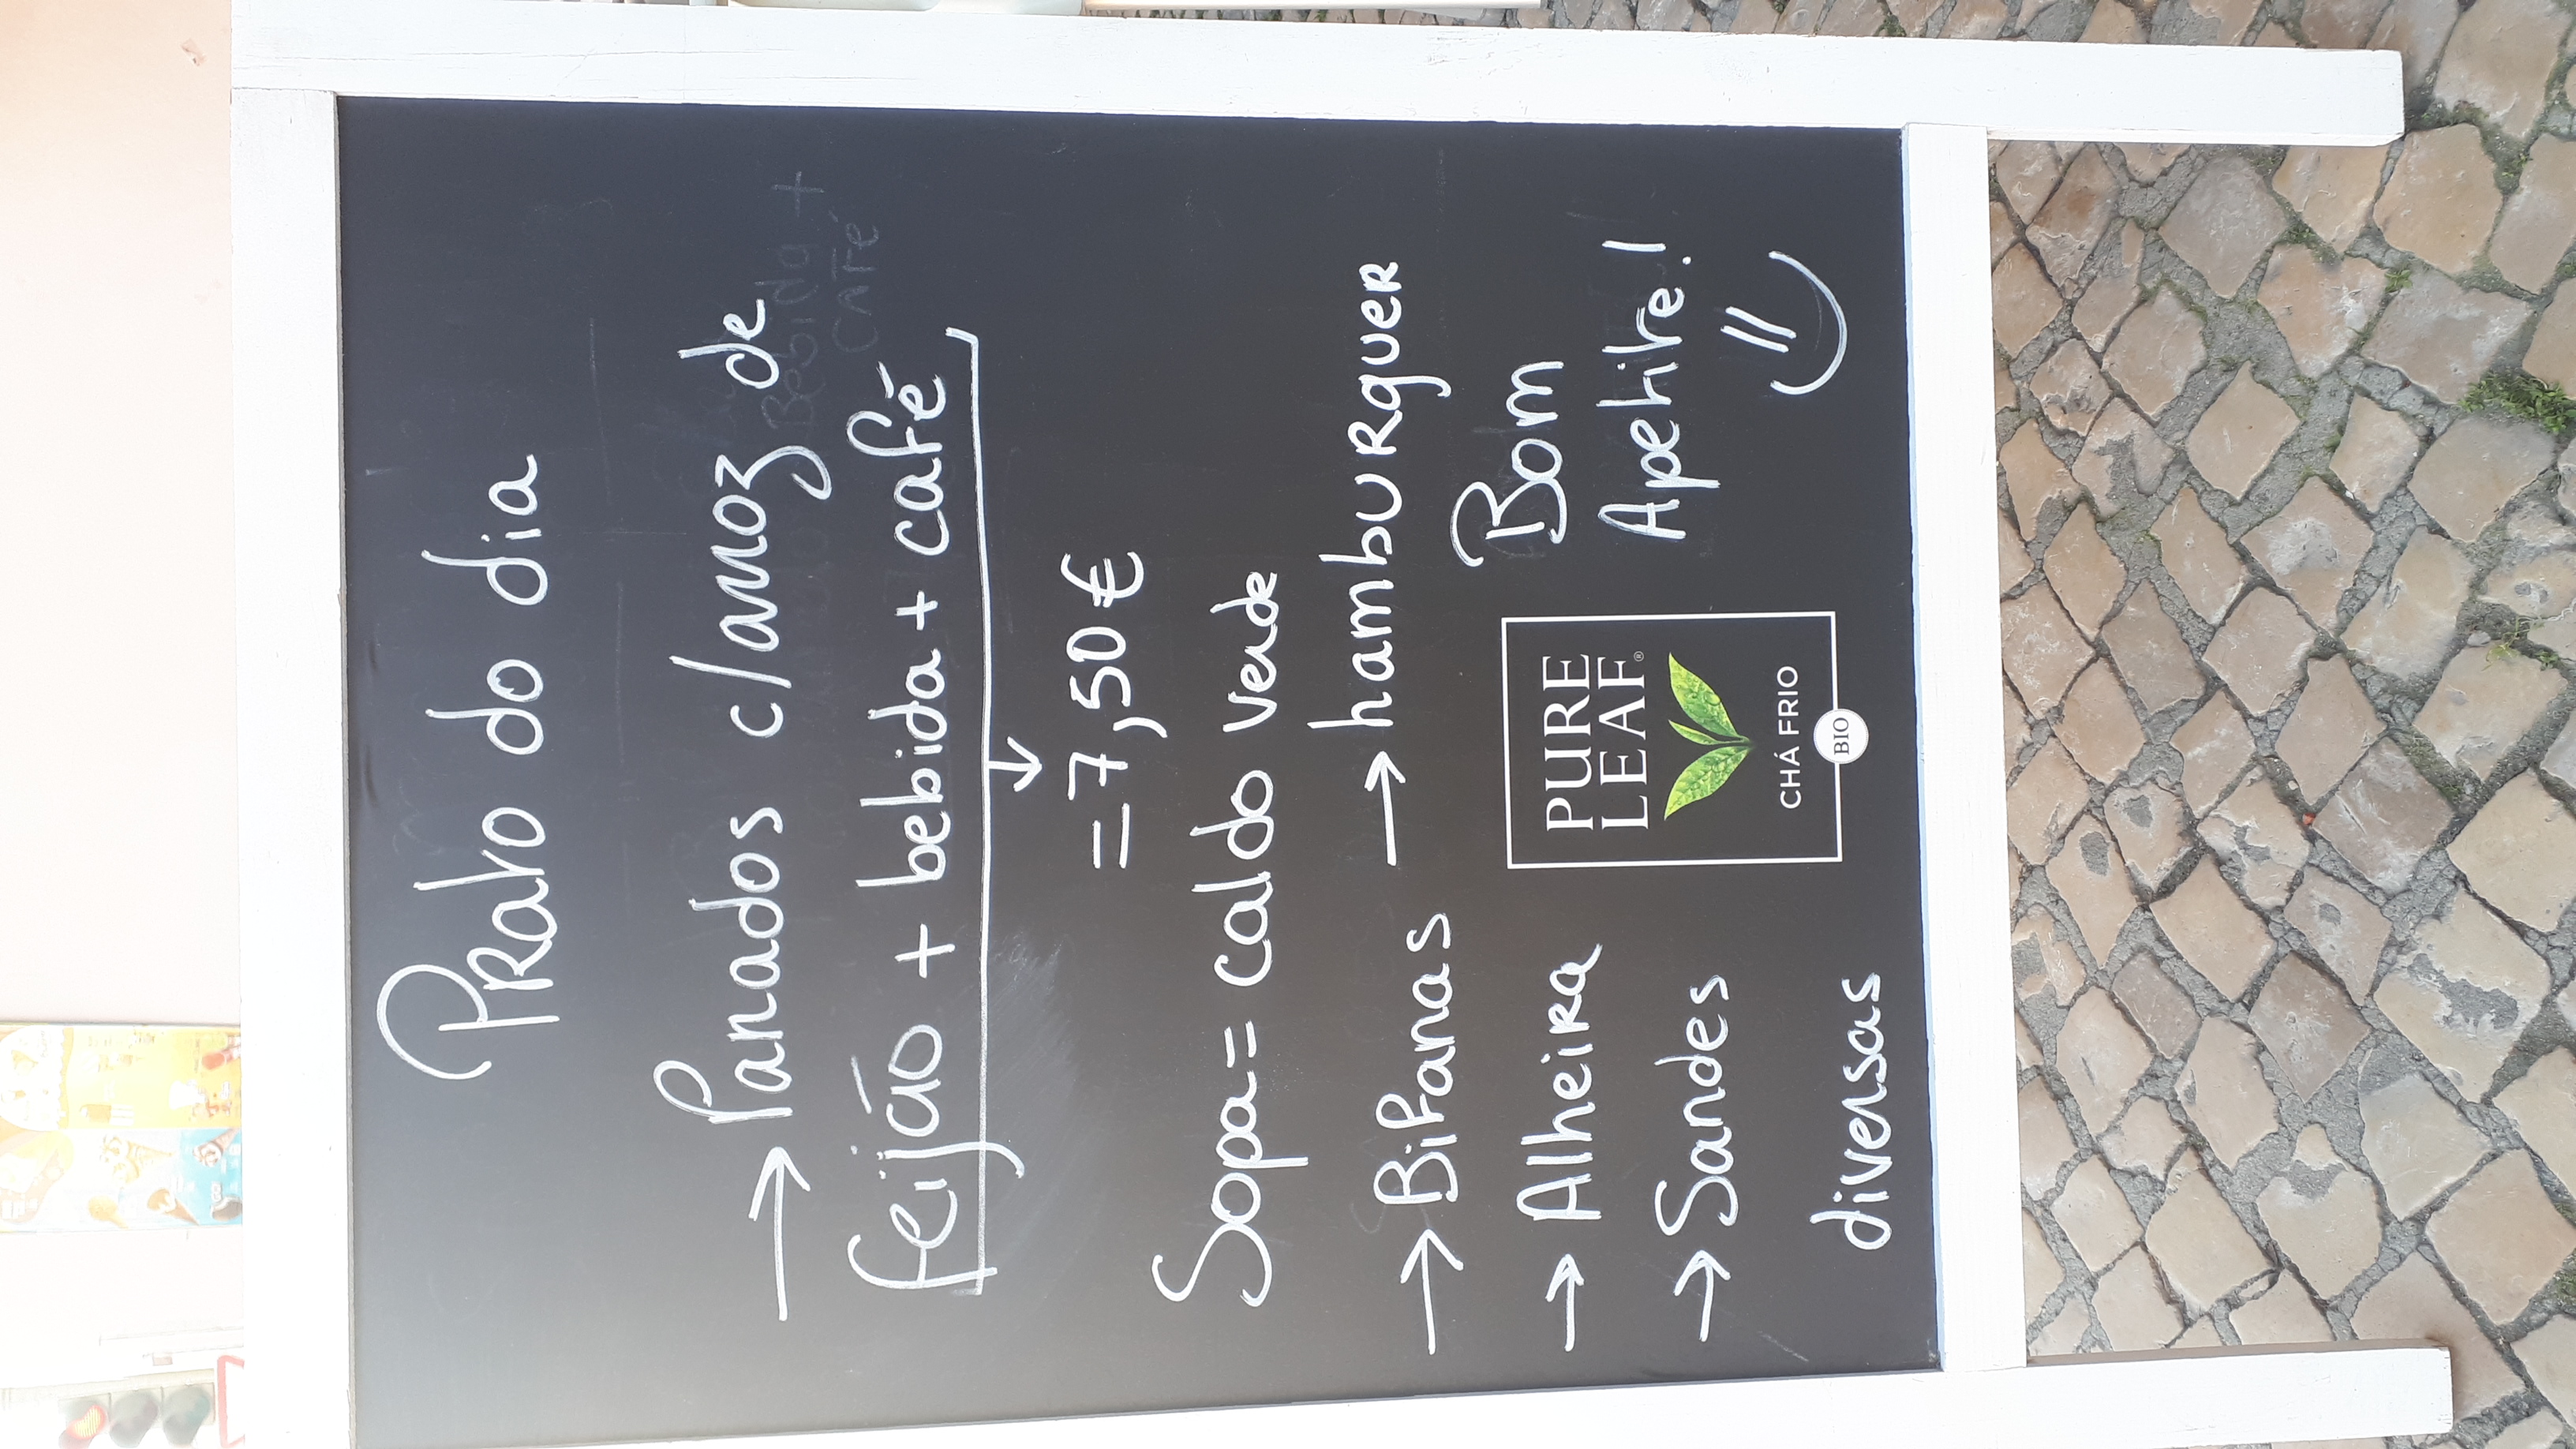 Prato do dia
→ Panados c/arroz de
feijão + bebida + café
↓
= 7,50 €
Sopa = caldo verde
→ Bifanas → hambuRguer
→ Alheira
→ Sandes
diversas
Bom
Apetite!
PURE
LEAF®
CHÁ FRIO
BIO
Bebida +
CAFÉ